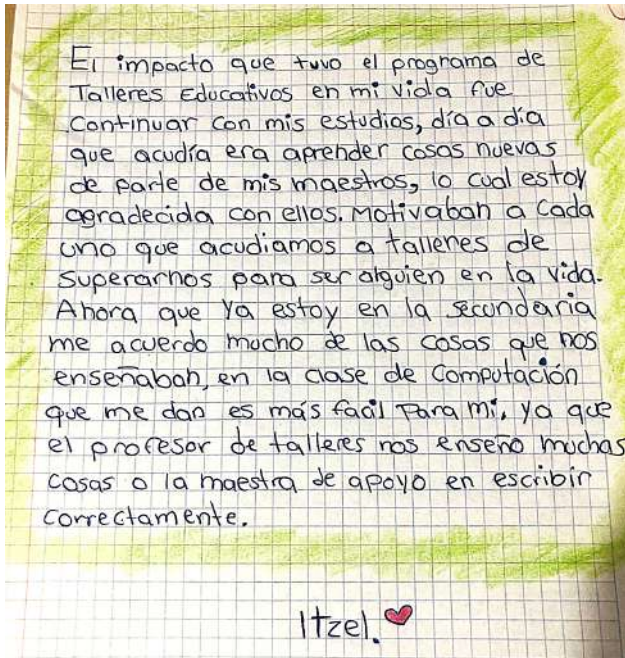 El impacto que tuvo el programa de
Talleres Educativos en mi vida fue
continuar con mis estudios, día a día
que acudía era aprender cosas nuevas
de parte de mis maestros, lo cual estoy
agradecida con ellos. Motivaban a cada
uno que acudiamos a talleres de
superarnos para ser alguien en la vida.
Ahora que ya estoy en la secundaria
me acuerdo mucho de las cosas que nos
enseñaban, en la clase de computación
que me dan es más facil para mi, ya que
el profesor de talleres nos enseño muchas
cosas o la maestra de apoyo en escribir
correctamente.
Itzel.